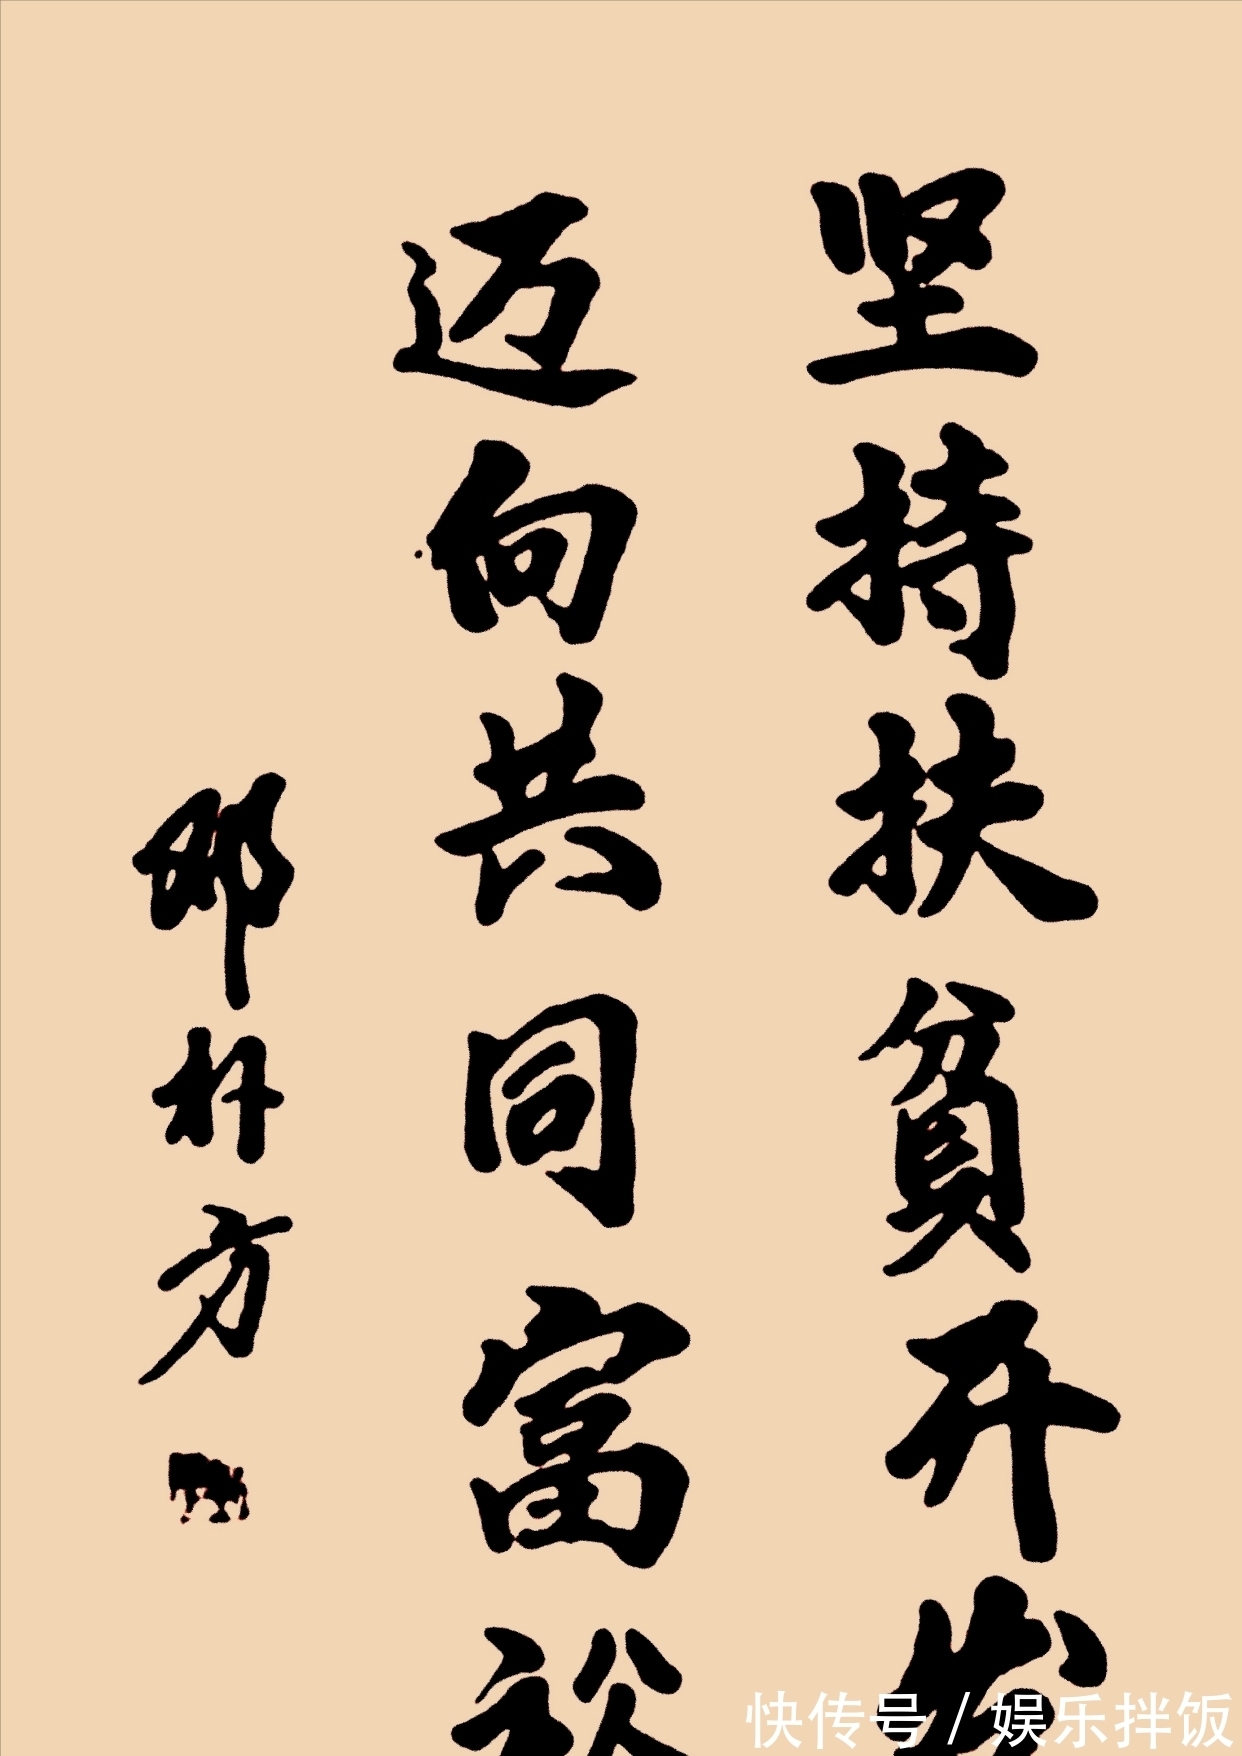 坚持扶贫开发
迈向共同富裕
邓朴方
快传号/娱乐拌饭